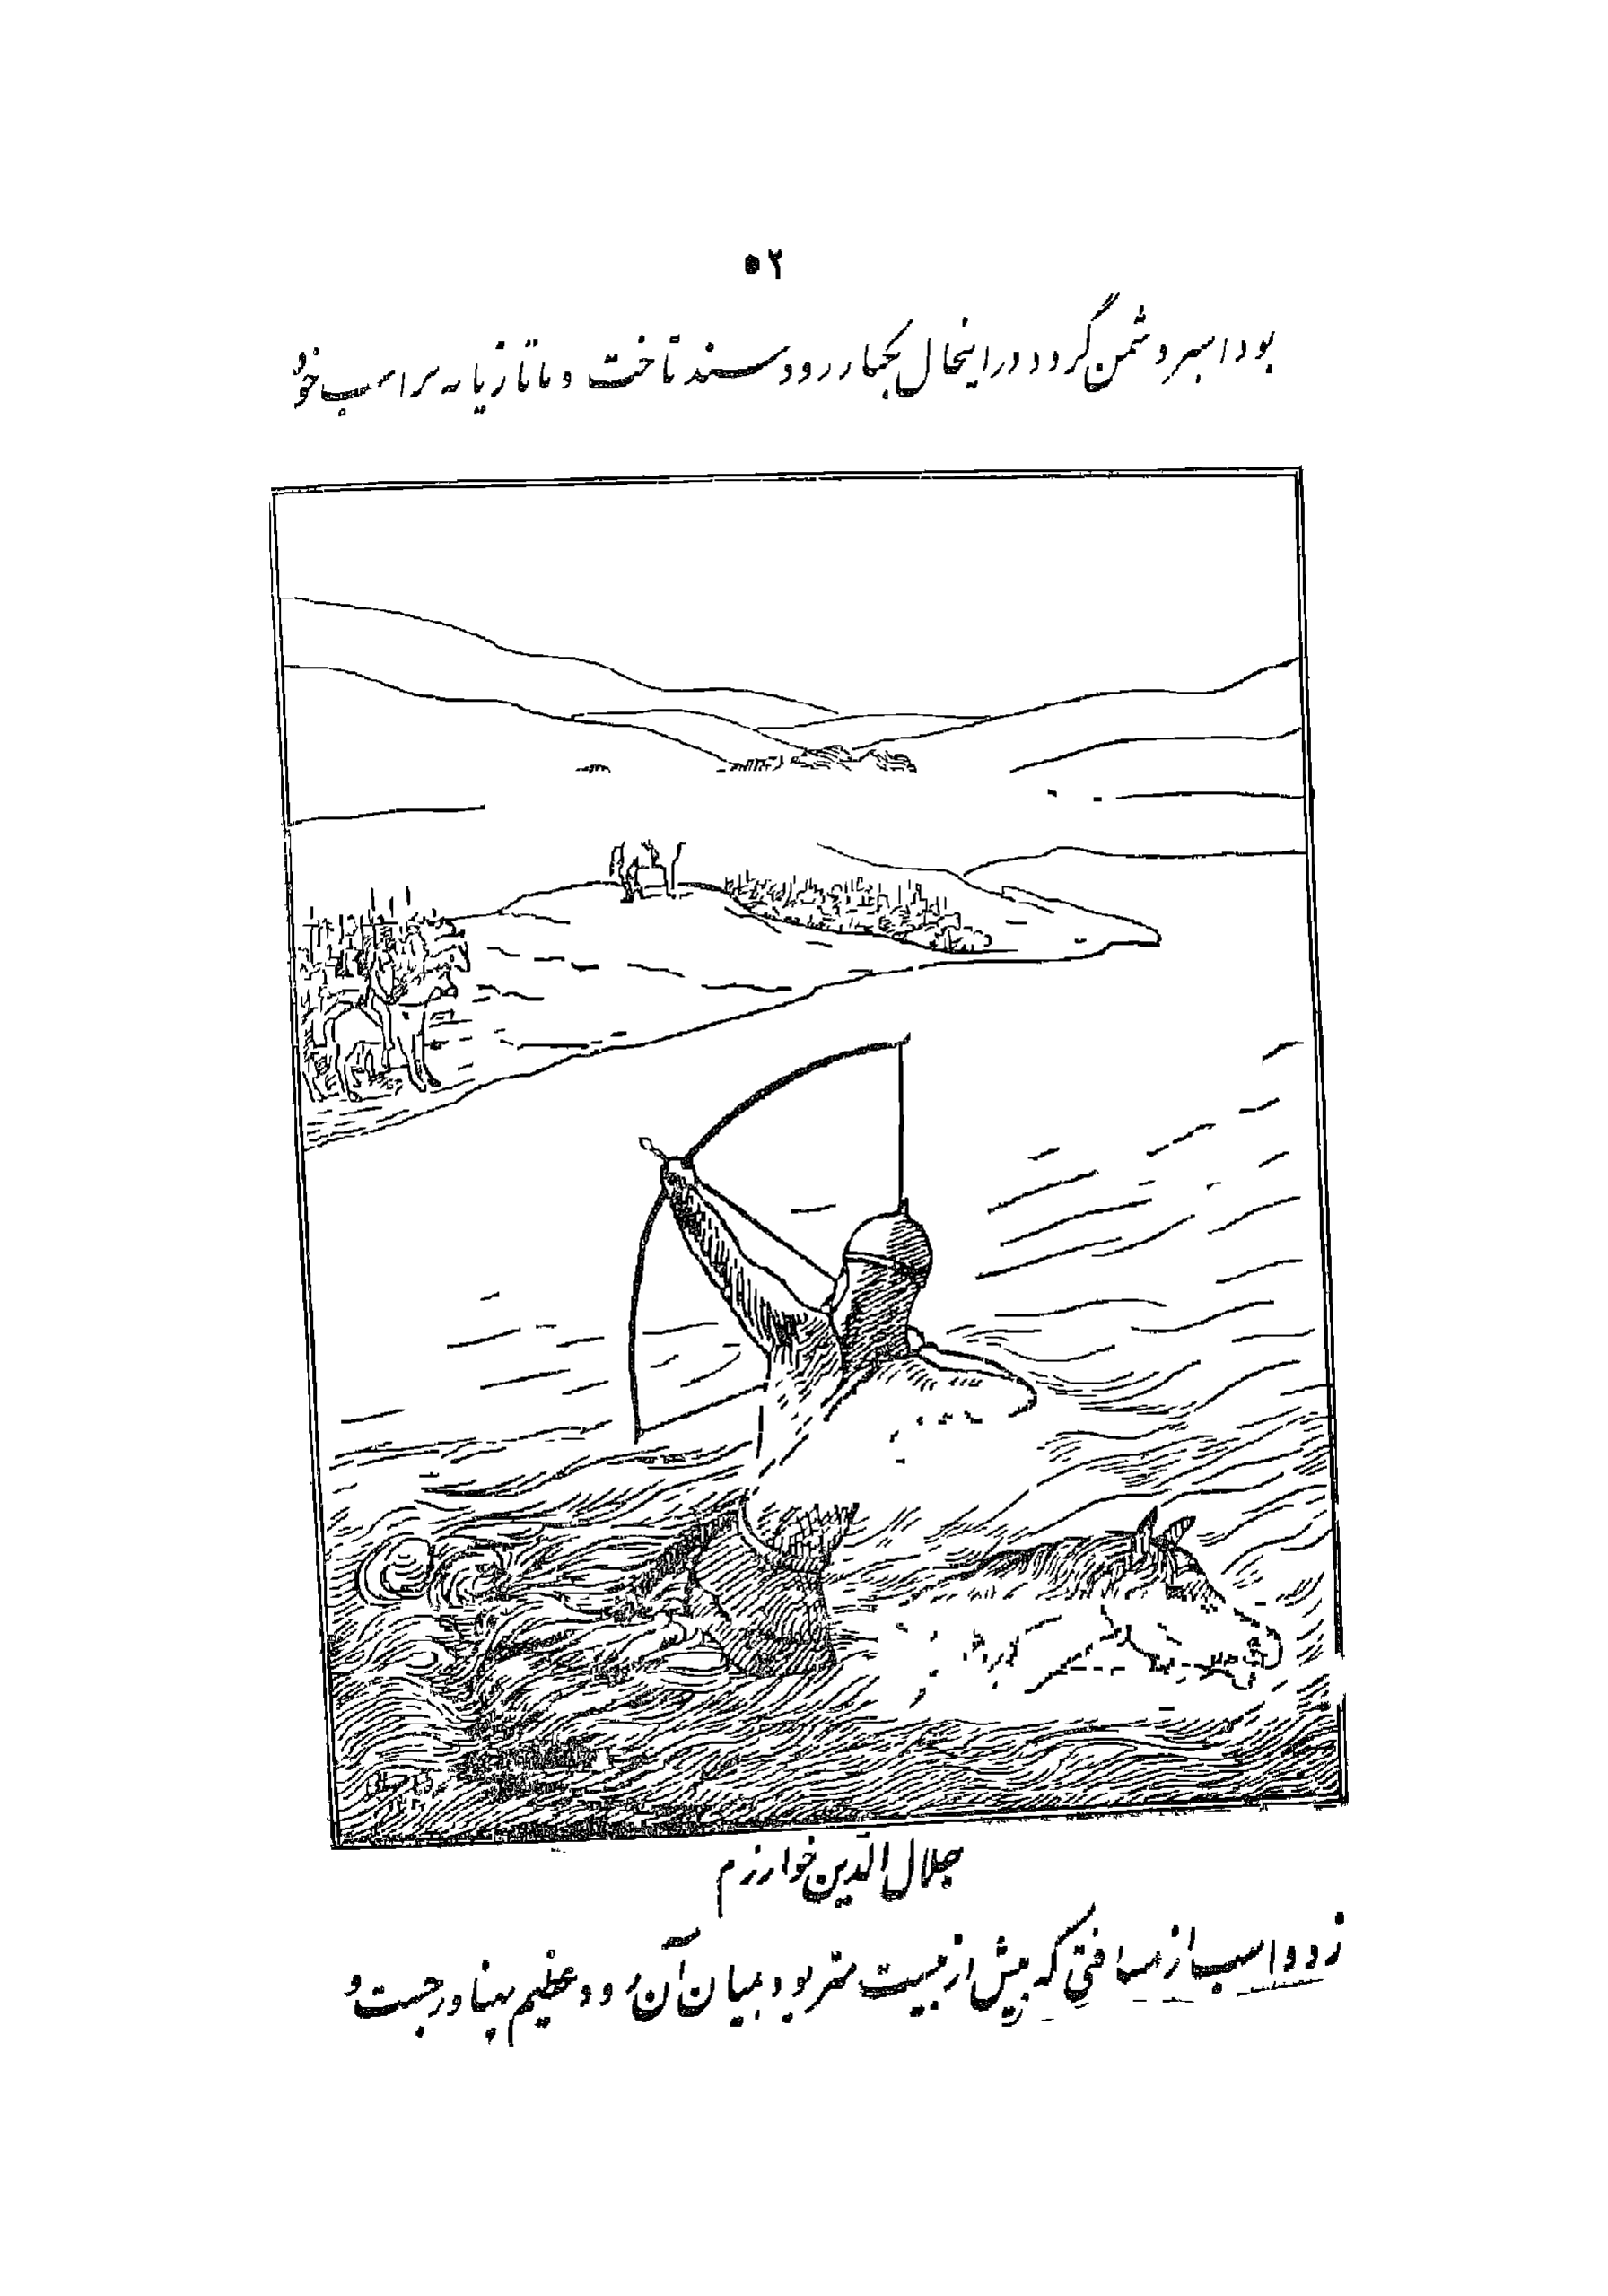 ۵۲
بود اسیر دشمن گردد در اینحال بکنار رود سند تاخت و با تازیانه بر اسب خود
جلال الدین خوارزم
زد و اسب از مسافتی که بیش از بیست متر بود بمیان آن رود عظیم پهناور جست و